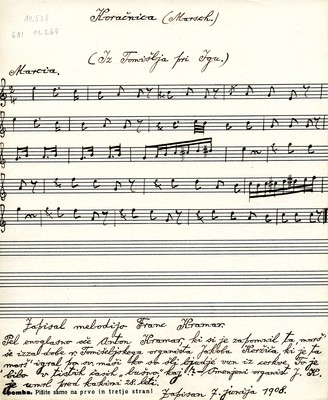 11.523
GNI 11.268
Koračnica (Marsch.)
(Iz Tomišlja pri Igu.)
Marcia.
Zapisal melodijo Franc Kramar.
Pel enoglasno oče Anton Kramar, ki si je zapomnil ta „marš"
še izza dobe v. Tomišeljskega organista Jakoba Keržiča, ki je ta
„marš" igral po sv. maši ko so šli ljudje ven iz cerkve. To je
bilo v tistih časih „luštno" kaj!? Omenjeni organist J. K.
je umrl pred kakimi 28. leti.
Opomba: Pišite samo na prvo in tretjo stran!
Zapisan 7. junija 1908.